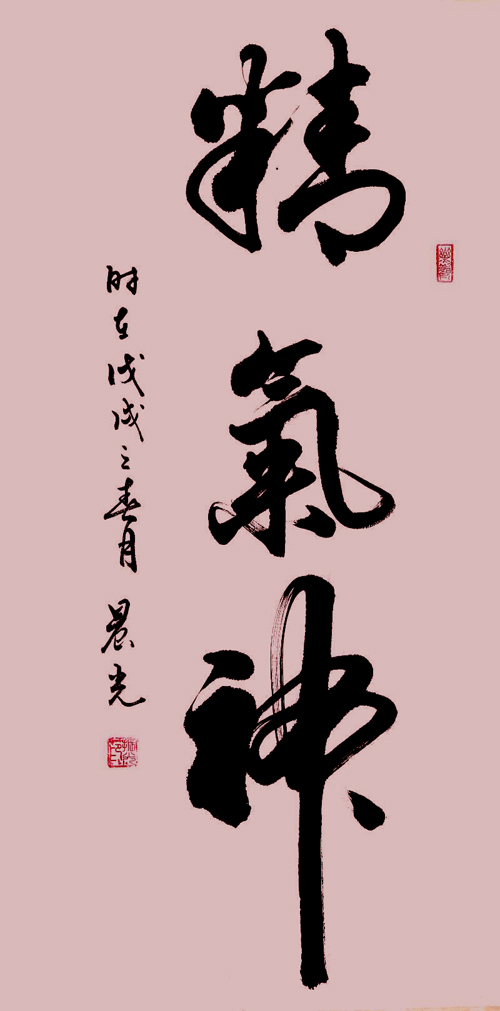 精氣神
时在戊戌之春月 晨光